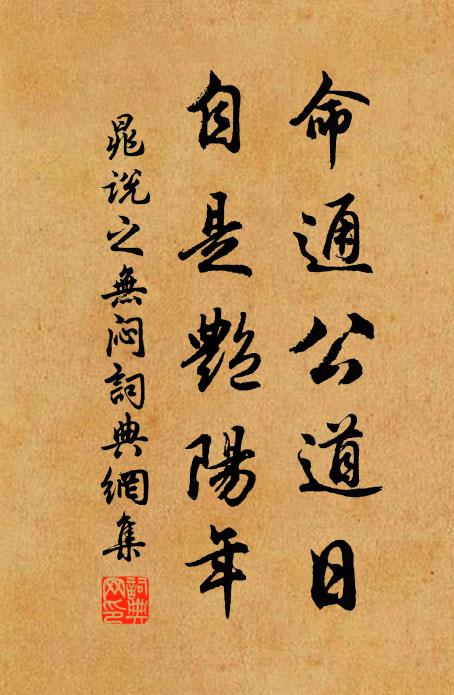 命通公道日
自是艷陽年
晁説之無闷詞典網集
詞典
网印